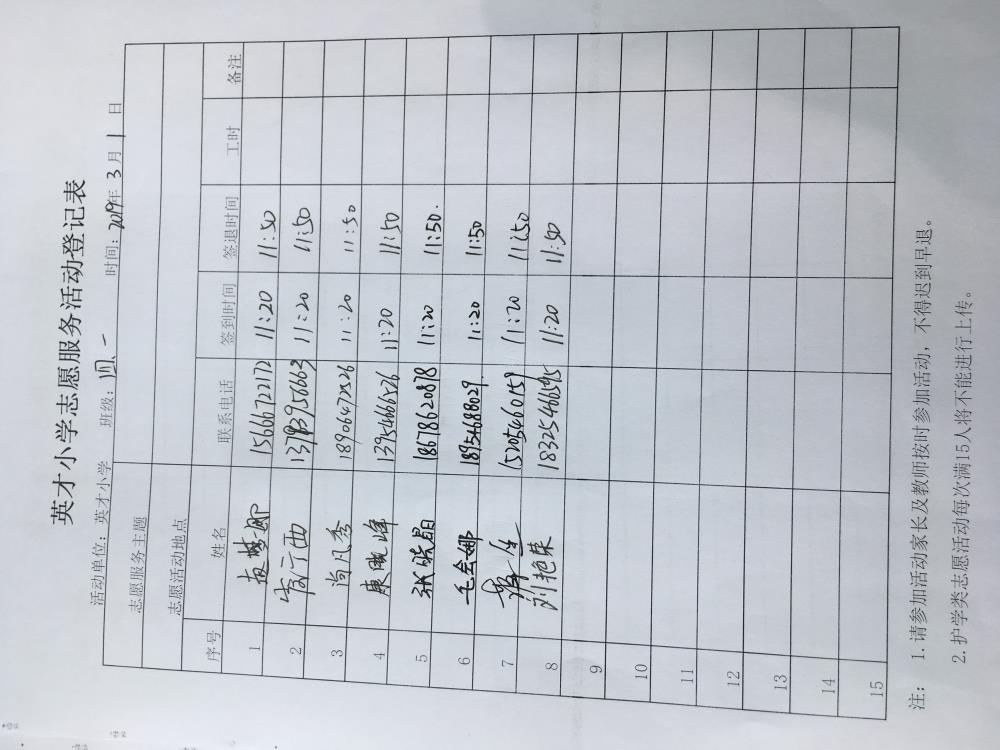 英才小学志愿服务活动登记表
活动单位：英才小学 班级：四、一 时间：2019年 3 月 1 日
志愿服务主题
志愿活动地点
序号 姓名 联系电话 签到时间 签退时间 工时 备注
1 15666722172 11:20 11:50
2 11:20 11:50
3 尚凡秀 18906472526 11:20 11:50
4 康晓峰 13954666526 11:20 11:50
5 张晓晶 18678620878 11:20 11:50.
6 毛会娜 18954688029. 11:20 11:50
7 15205460159 11:20 11:50
8 刘艳荣 18325466595 11:20 11:50
9
10
11
12
13
14
15
注： 1.请参加活动家长及教师按时参加活动，不得迟到早退。
2.护学类志愿活动每次满15人将不能进行上传。